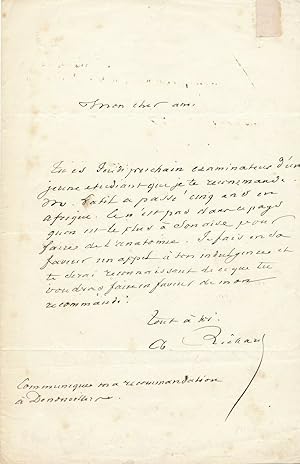 Mon cher ami
Tu es Jeudi prochain examinateur d'un
jeune etudiant que je te recommande.
Mr. Petit a passé cinq ans en
afrique. Ce n'est pas dans ce pays
qu'on est le plus à son aise pour
faire de l'anatomie. Je fais en sa
faveur un appel à ton indulgence et
te serai reconnaissant de ce que tu
voudras faire en faveur de mon
recommandé.
Tout à toi
A. Richard
Communique ma recommandation
à Denonvilliers.